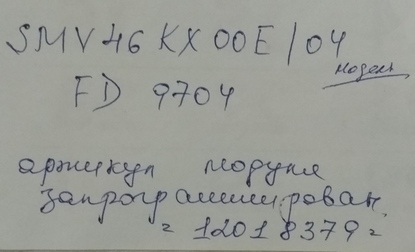 SMV46KX00E/04
модель
FD 9704
артикул модуля
запрограммирован.
= 12018379 =